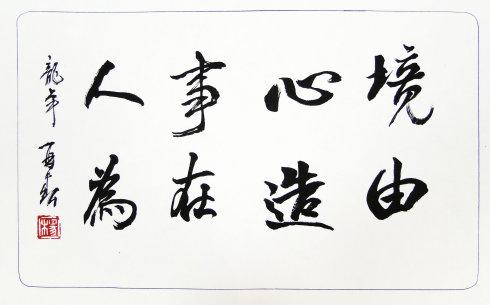 境由
心造
事在
人為
龍年